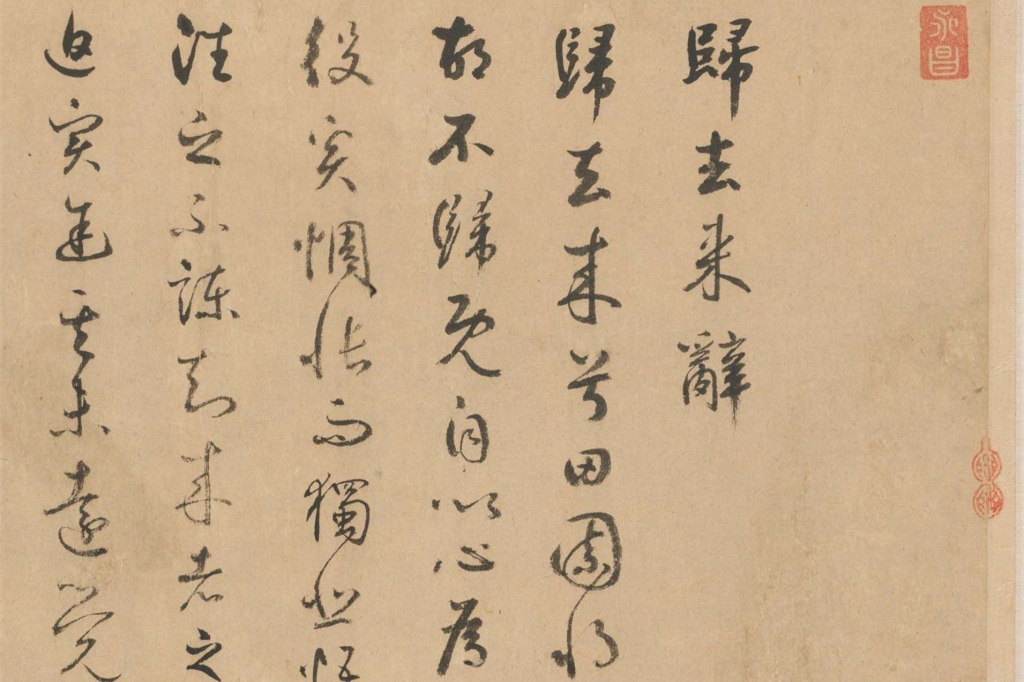 永昌
歸去来辭
歸去来兮田園將
胡不歸既自以心為
役奚惆悵而獨悲
往之不諫知来者之
追實其未遠覺